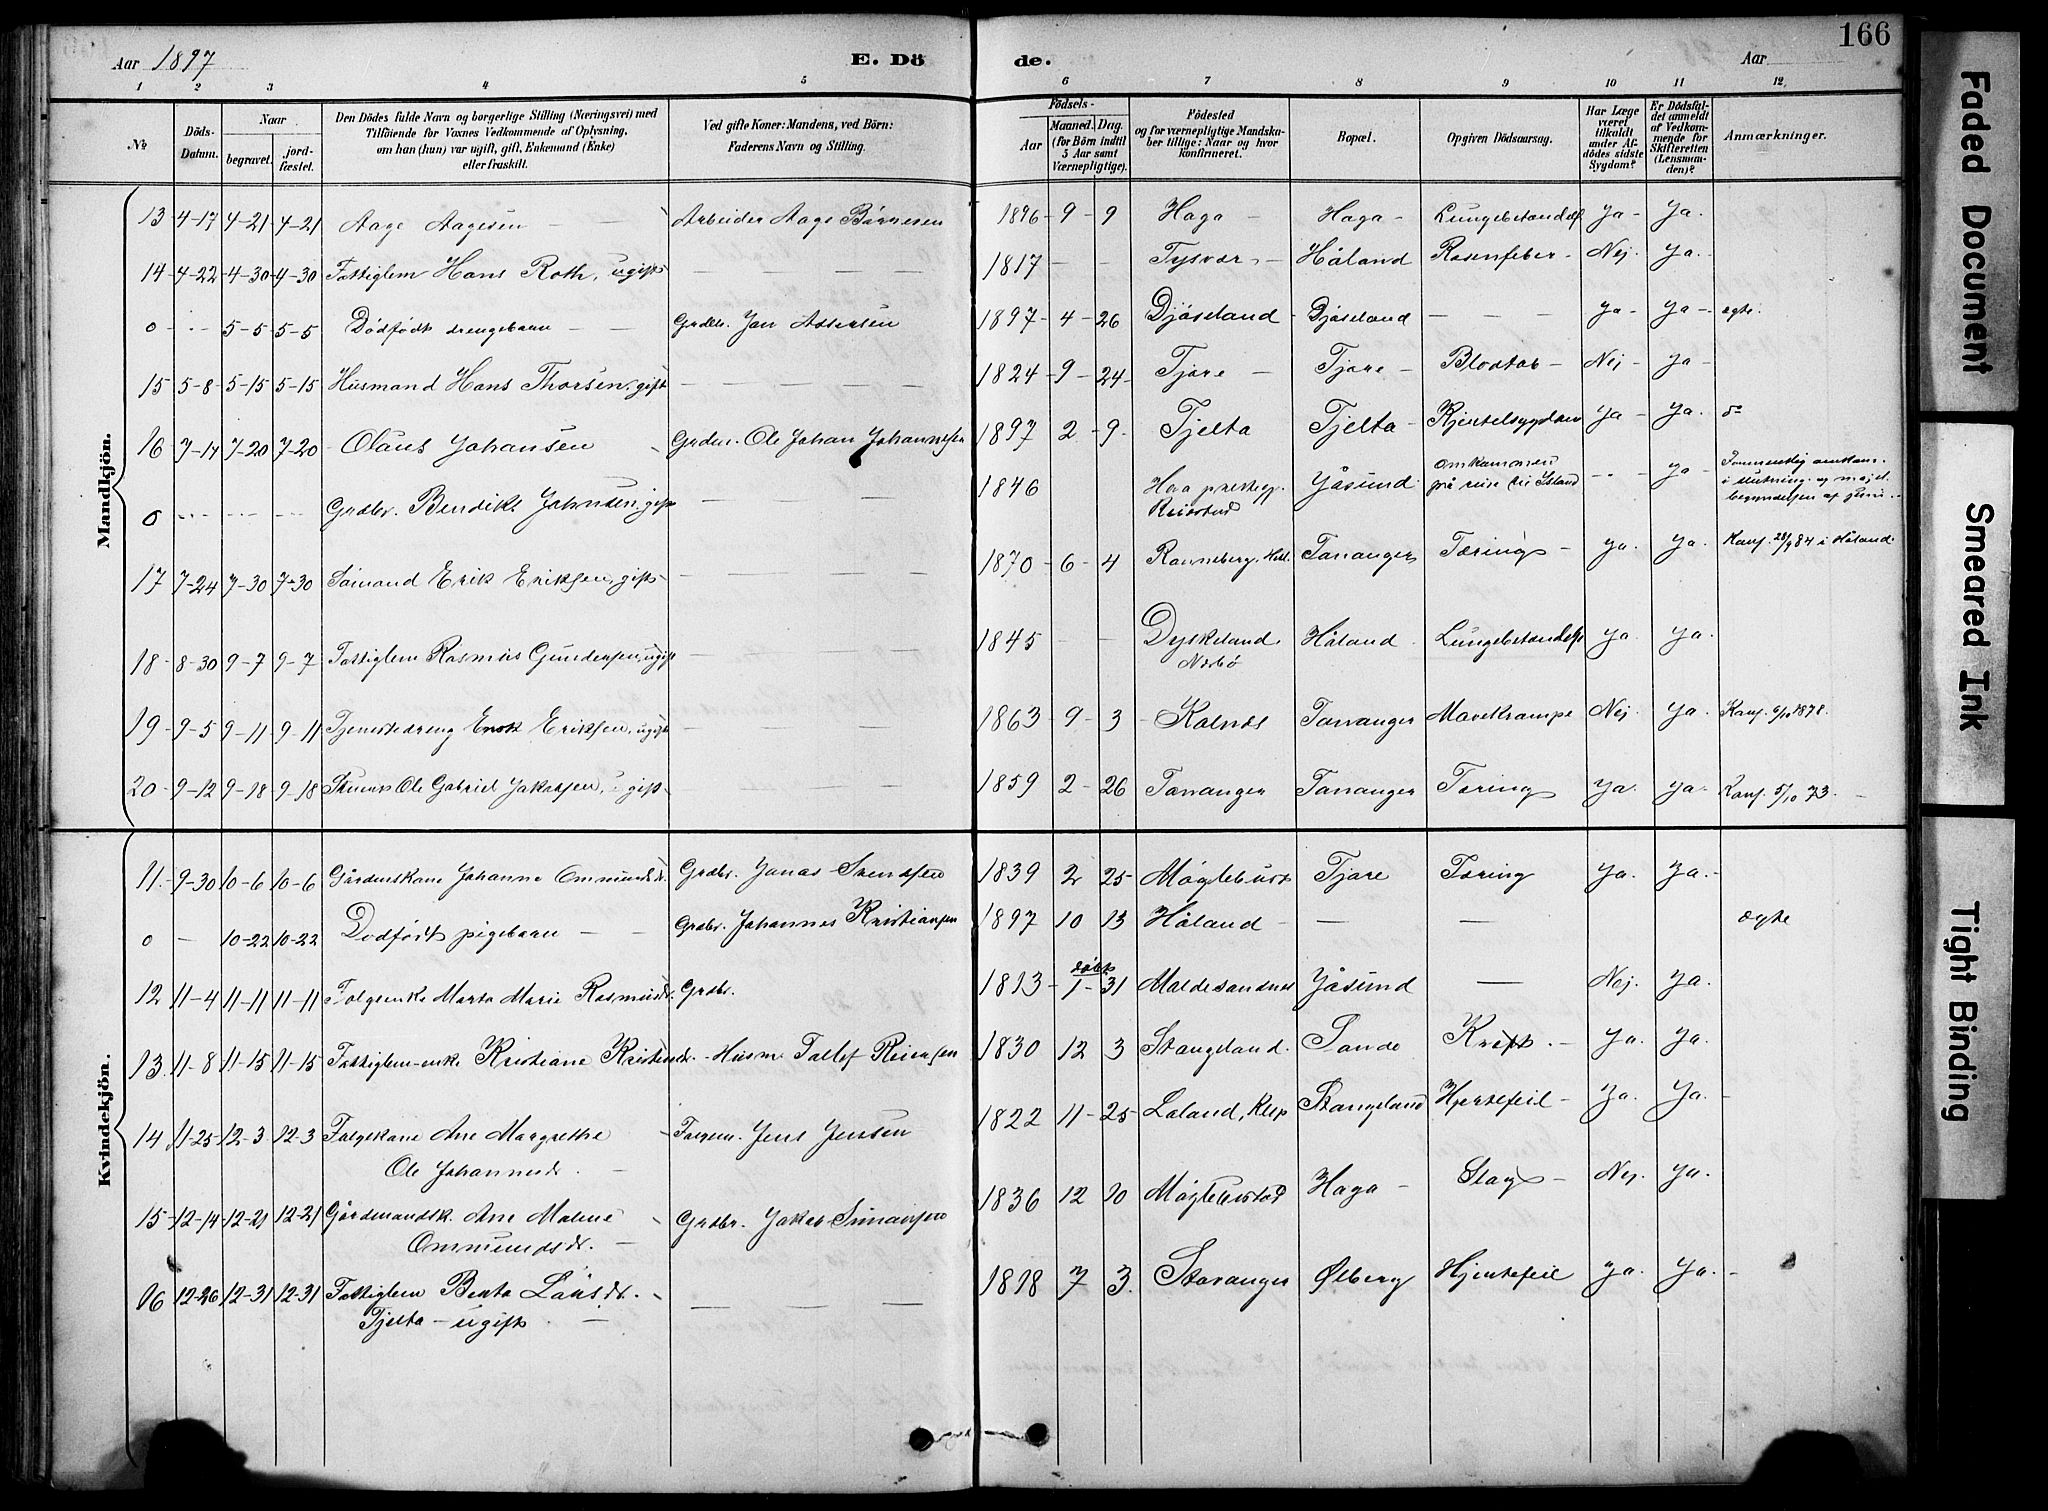 166
Aar 1897 E. Dö de. Aar
1 2 3 4 5 6 7 8 9 10 11 12.
No Döds-Datum. Naar begravet. jord-fæstet. Den Dödes fulde Navn og borgerlige Stilling (Næringsvei) med Tilföiende for Voxnes Vedkommende af Oplysning, om han (hun) var ugift, gift, Enkemand (Enke) eller fraskilt. Ved gifte Koner: Mandens, ved Börn: Faderens Navn og Stilling. Födsels- Aar Maaned. Dag. (for Börn indtil 5 Aar samt Værnepligtige). Födested og for værnepligtige Mandska-ber tillige: Naar og hvor konfirmeret. Bopæl. Opgiven Dödsaarsag. Har Læge været tilkaldt under Af-dödes sidste Sygdom? Er Dödsfal-det anmeldt af Vedkom-mende for Skifteretten (Lensman-den)? Anmærkninger.
Mandkjön.
13 4-17 4-21 4-21 Aage Aagesen Arbeider Aage Børnesen 1896-9-9 Haga Haga Ja Ja.
14 4-22 4-30 4-30 Fattiglem Hans Roth, ugift 1817 Tysvær Håland Rosenfeber Nej Ja.
0 5-5 5-5 Dødfødt drengebarn Grdbr. Jan Assersen 1897-4-26 Djøseland Djøseland Ja Ja ægte.
15 5-8 5-15 5-15 Husmand Hans Thorsen, gift 1824-9-24 Tjore Tjore Blodtab Nej Ja
16 7-14 7-20 7-20 Olaus Johansen Grdbr. Ole Johan Johannesen 1897 2-9. Tjelta Tjelta Ja Ja. do
0 Grdbr. Bendikt Johnsen, gift 1846 Jåsund omkommen på reise til Island Ja
17 7-24 7-30 7-30 Sømand Erik Eriksen, gift 1870-6-4 Ranneberg, Hål. Tananger Tæring Ja. Ja. Konf. 28/9 84 i Håland.
18 8-30 9-7 9-7 Fattiglem Rasmus Gundersen, ugift 1845 Dyskeland Nærbø Håland Ja Ja.
19 9-5 9-11 9-11 Tjenestedreng Enok Eriksen, ugift 1863-9-3 Kolnes Tananger Mavekrampe Nej. Ja. Konf. 6/10 1878.
20 9-12 9-18 9-18 Ole Gabriel Jakobsen, ugift 1859 2-26 Tananger Tananger Tæring Ja. Ja. Konf. 5/10 73.
Kvindekjön.
11. 9-30 10-6 10-6 Gårdmskone Johanne Ommundsdr. Grdbr. Jonas Svendsen 1839 2 25 Møgleburst Tjore Tæring Ja. Ja.
0 10-22 10-22 Dødfødt pigebarn Grdbr. Johannes Kristiansen 1897 10 13 Håland ægte
12 11-4 11-11 11-11 Folgeenke Marta Marie Rasmusdr. Grdbr. 1813 døbt 1-31 Maldesandnes Jåsund Nej. Ja.
13. 11-8 11-15 11-15 Fattiglem-enke Kristiane Kristensdr. Husm Tollef Reiersen 1830 12 3 Stangeland. Sande Kræft. Ja. Ja.
14 11-25 12-3 12-3 Folgekone Ane Margrethe Folgem. Jens Jensen 1822 11-25 Laland, Klep Stangeland Hjertefeil Ja. Ja.
Ole Johannesdr.
15 12-14 12-21 12-21 Gårdmandsk. Ane Malene Grdbr. Jakob Simonsen 1836 12 20 Møgleburst Haga Slag Nej. Ja.
Ommundsdr.
16 12-26 12-31 12-31 Fattiglem Berta Larsdr. 1818 7 3. Stavanger Ølberg Hjertefeil Ja. Ja.
Tjelta - ugift
Faded Document
Smeared Ink
Tight Binding